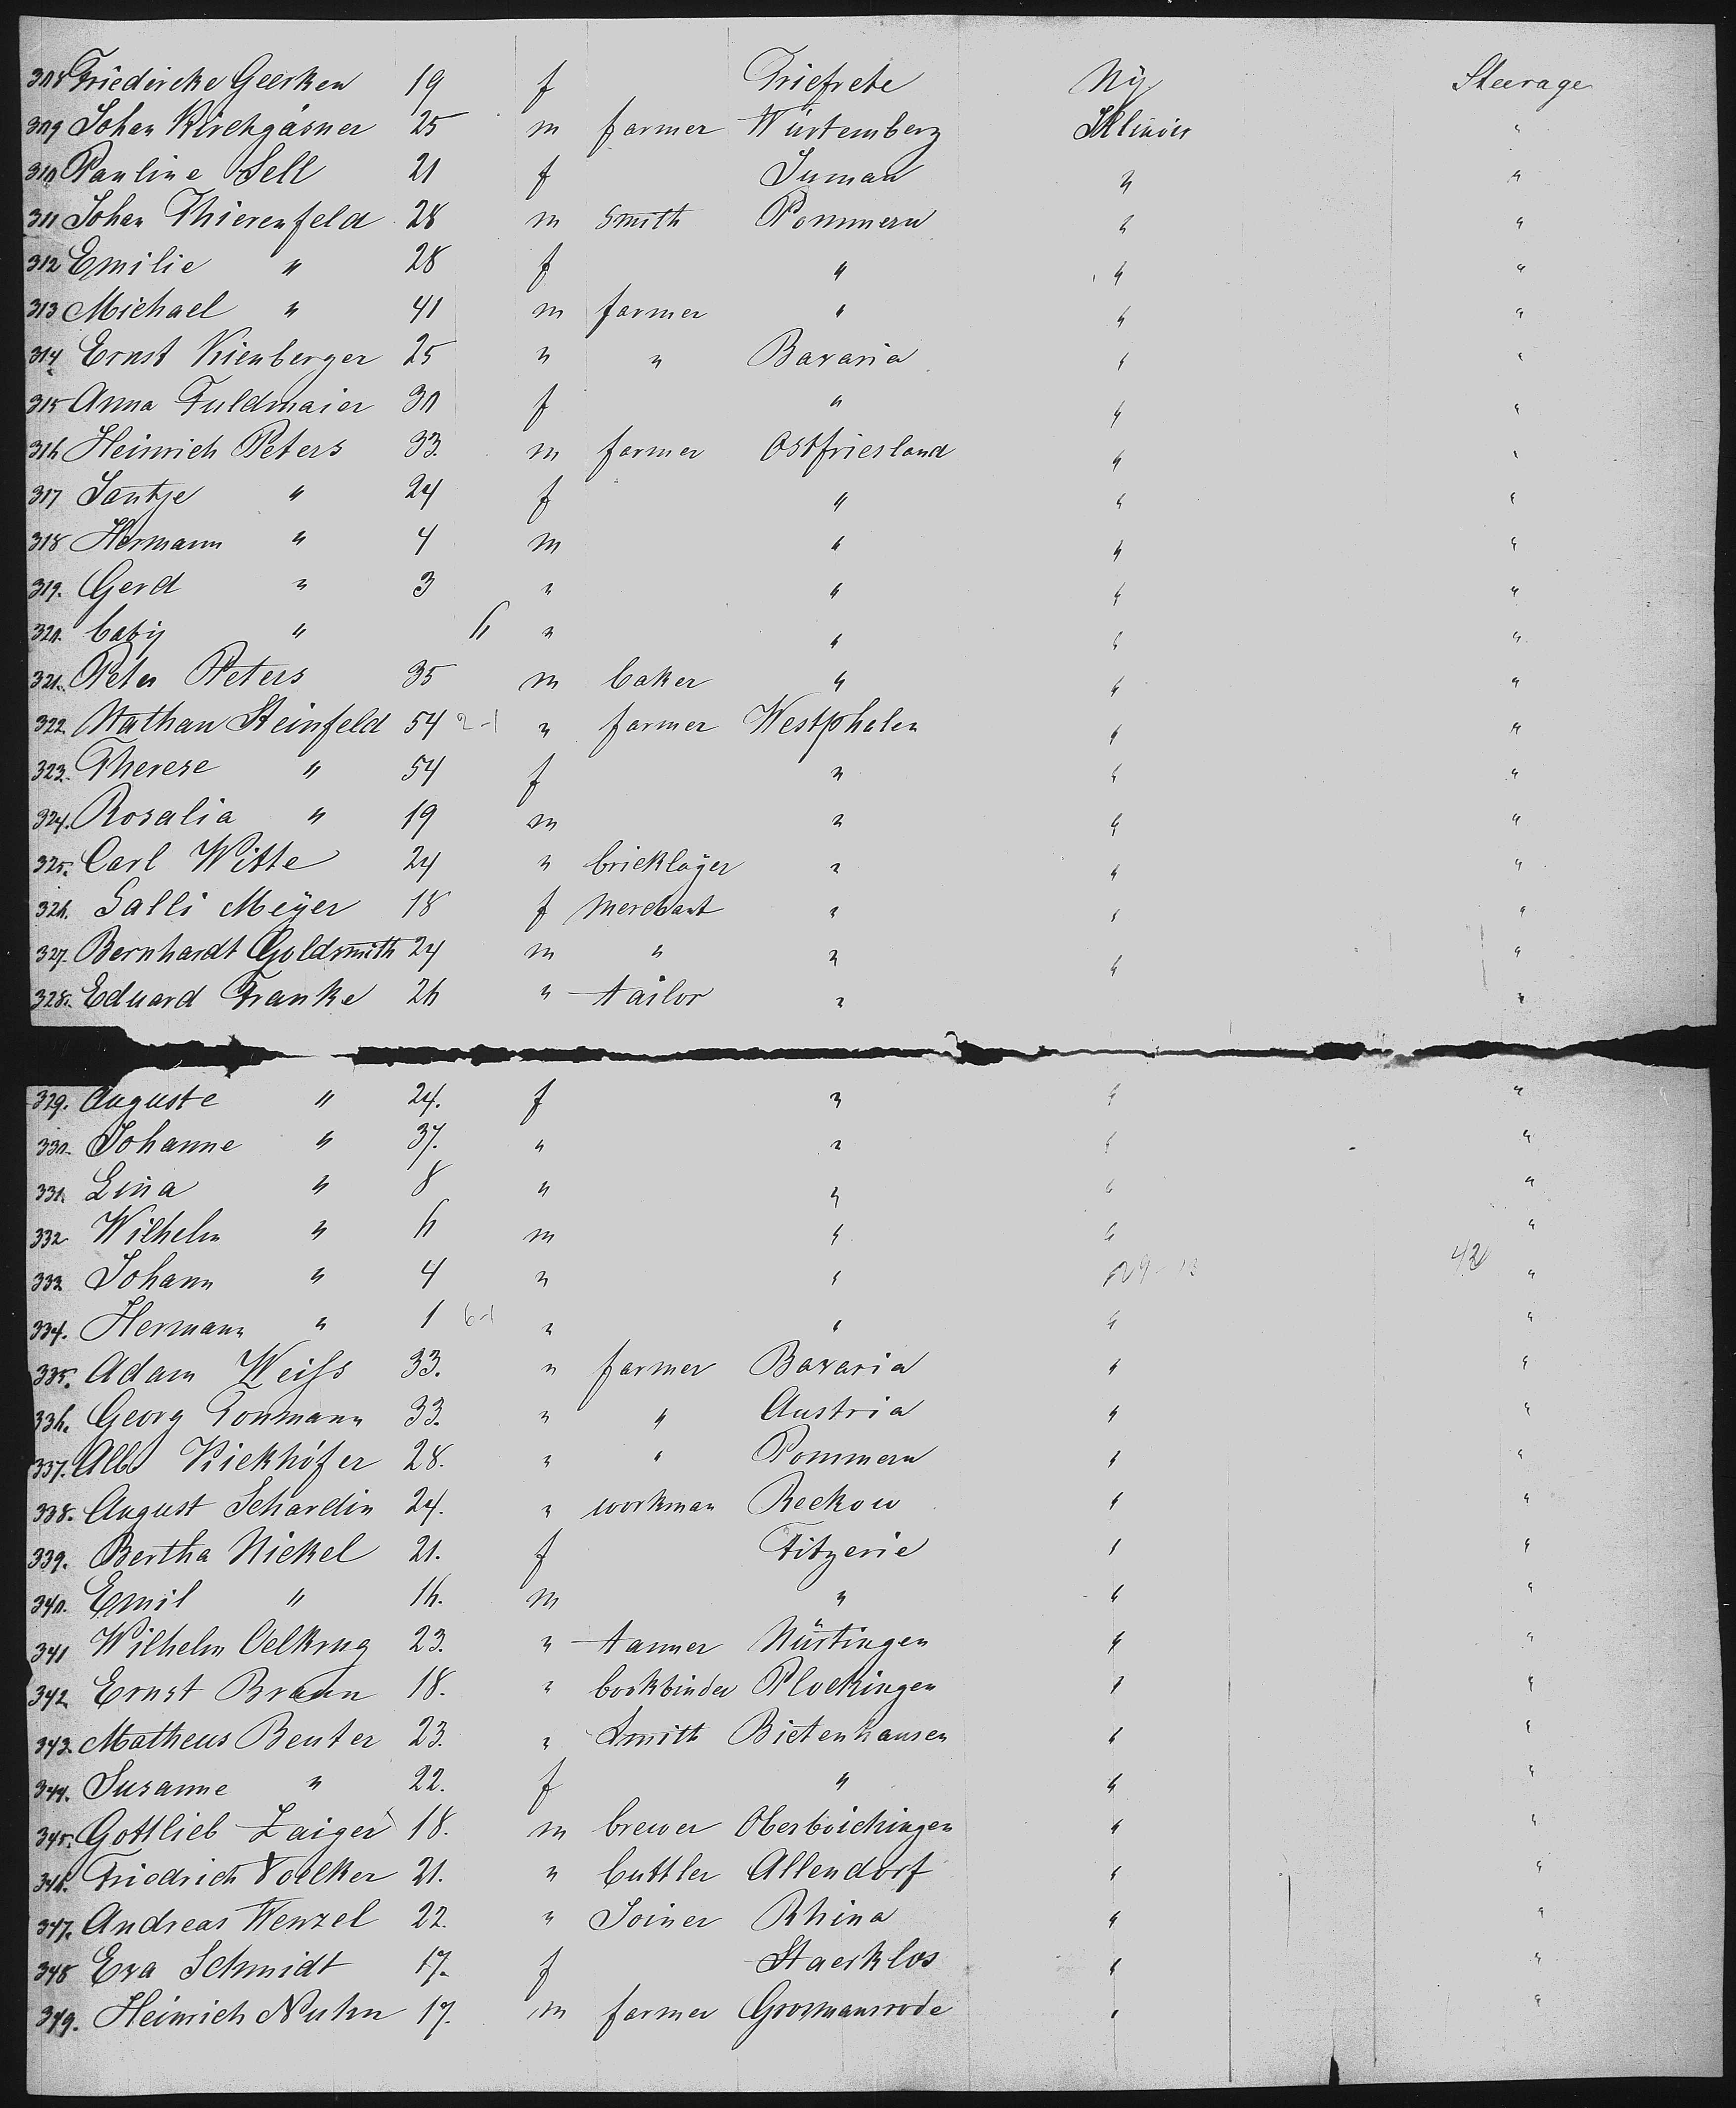 308 Friedericke Geerken 19 f Friefrete Ny Steerage
309 Johan Kirchgäsner 25 m farmer Würtemberg Illinois "
310 Pauline Sell 21 f Juman " "
311 Johan Thierenfeld 28 m Smith Pommern " "
312 Emilie " 28 f " " "
313 Michael " 41 m farmer " " "
314 Ernst Kienberger 25 " " Bavaria " "
315 Anna Fuldmaier 30 f " " "
316 Heinrich Peters 33. m farmer Ostfriesland " "
317 Jantje " 24 f " " "
318 Hermann " 4 m " " "
319. Gerd " 3 " " " "
320. baby " 6 " " " "
321. Peter Peters 35 m baker " " "
322. Nathan Steinfeld 54 2-1 " farmer Westphalen " "
323. Therese " 54 f " " "
324. Rosalia " 19 m " " "
325. Carl Witte 24 " bricklayer " " "
326. Salli Meyer 18 f merchant " " "
327. Bernhardt Goldsmith 24 m " " " "
328. Eduard Franke 26 " tailor " "
329. Auguste " 24. f " " "
330. Johanne " 37. " " " "
331. Lina " 8 " " " "
332. Wilhelm " 6 m " " "
333. Johann " 4 " " 42 "
334. Hermann " 1 6-1 " " " "
335. Adam Weiss 33. " farmer Bavaria " "
336. Georg Tonmann 33. " " Austria " "
337. Alb. Kiekhöfer 28. " " Pommern " "
338. August Schardin 24. " workman Reckow " "
339. Bertha Nickel 21. f Fitzerie " "
340. Emil " 16. m " " "
341 Wilhelm Oelkrug 23. " tanner Nürtingen " "
342. Ernst Braun 18. " bookbinder Plockingen " "
343. Matheus Beuter 23. " Smith Bietenhausen " "
344. Susanne " 22. f " " "
345. Gottlieb Zaiger 18. m brewer Oberboichingen " "
346. Friedrich Voelker 21. " buttler Allendorf " "
347. Andreas Wenzel 22. " Joiner Rhina " "
348 Eva Schmidt 17. f Staerklos " "
349. Heinrich Nuhn 17. m farmer Grosmansrode " "